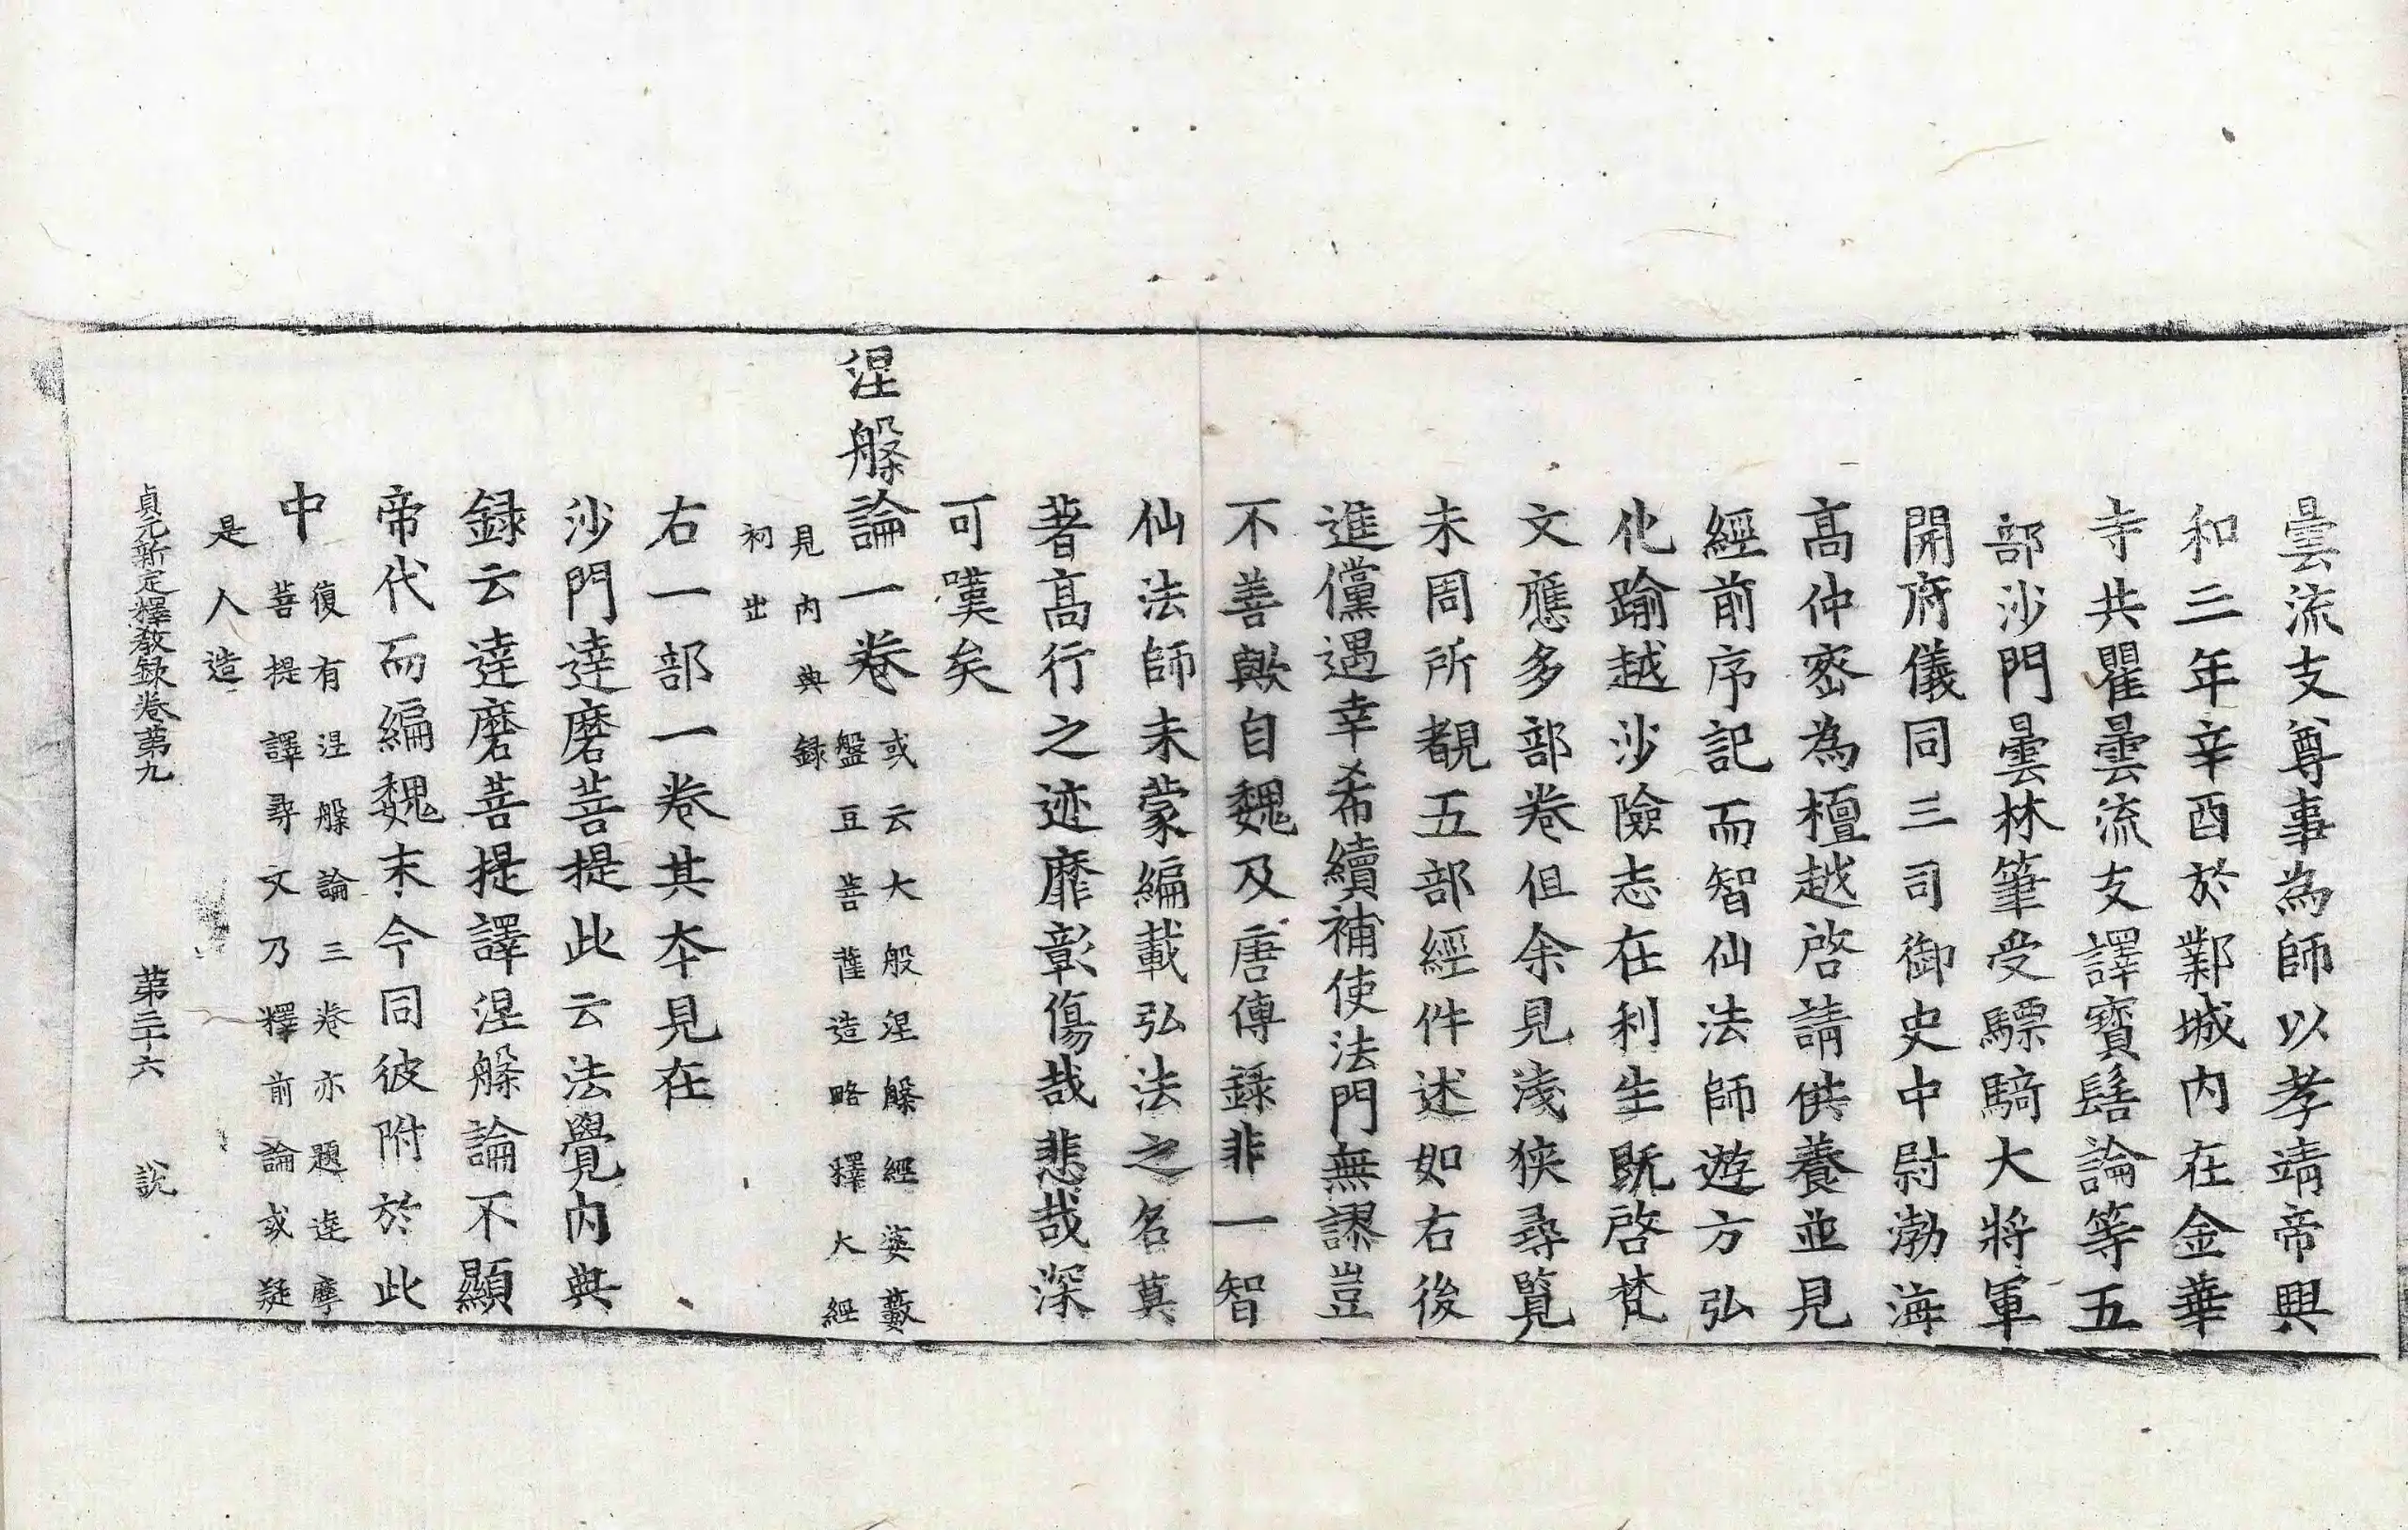 曇流支尊事為師以孝靖帝興
和三年辛酉於鄴城內在金華
寺共瞿曇流支譯寶髻論等五
部沙門曇林筆受驃騎大將軍
開府儀同三司御史中尉渤海
髙仲宻為檀越啓請供養並見
經前序記而智仙法師遊方弘
化踰越沙險志在利生旣啓梵
文應多部卷但余見淺狹尋覽
未周所覩五部經件述如右後
進儻遇幸希續補使法門無謬豈
不善歟自魏及唐傳錄非一智
仙法師未蒙編載弘法之名莫
著髙行之迹靡彰傷哉悲哉深
可嘆矣
涅槃論一卷或云大般涅槃經婆藪
盤豆菩薩造略釋大經
見內典録
初出
右一部一卷其夲見在
沙門達磨菩提此云法覺內典
録云達磨菩提譯涅槃論不顯
帝代而編魏末今同彼附於此
中復有涅槃論三卷亦題達摩
菩提譯尋文乃釋前論或疑
是人造
貞元新定釋教録卷第九 第二十六 說